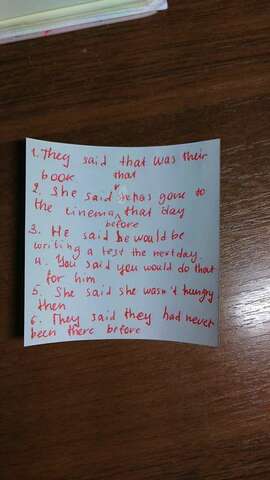 1. They said that was their
book
that
2. She said has gone to
the cinema that day
before
3. He said he would be
writing a test the next day.
4. You said you would do that
for him
5. She said she wasn't hungry
then
6. They said they had never
been there before